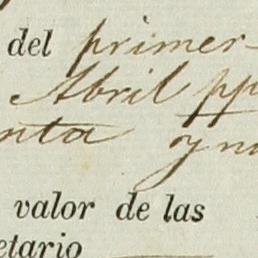 del primer-
Abril pp
nta y nu
valor de las
etario